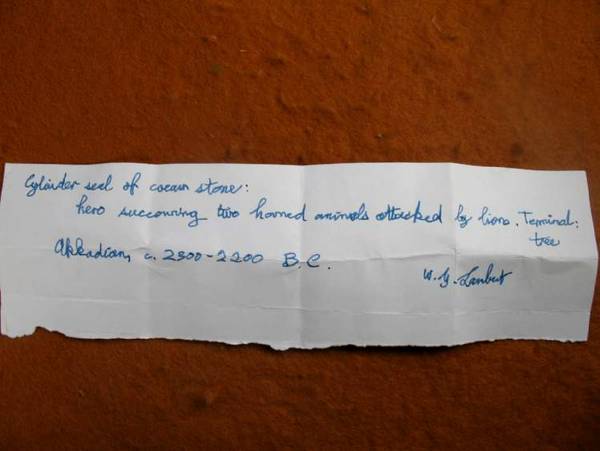 Cylinder seal of cream stone:
hero succouring two horned animals attacked by lions. Terminal:
tree
Akkadian, c. 2300-2200 B.C.
W. G. Lambert